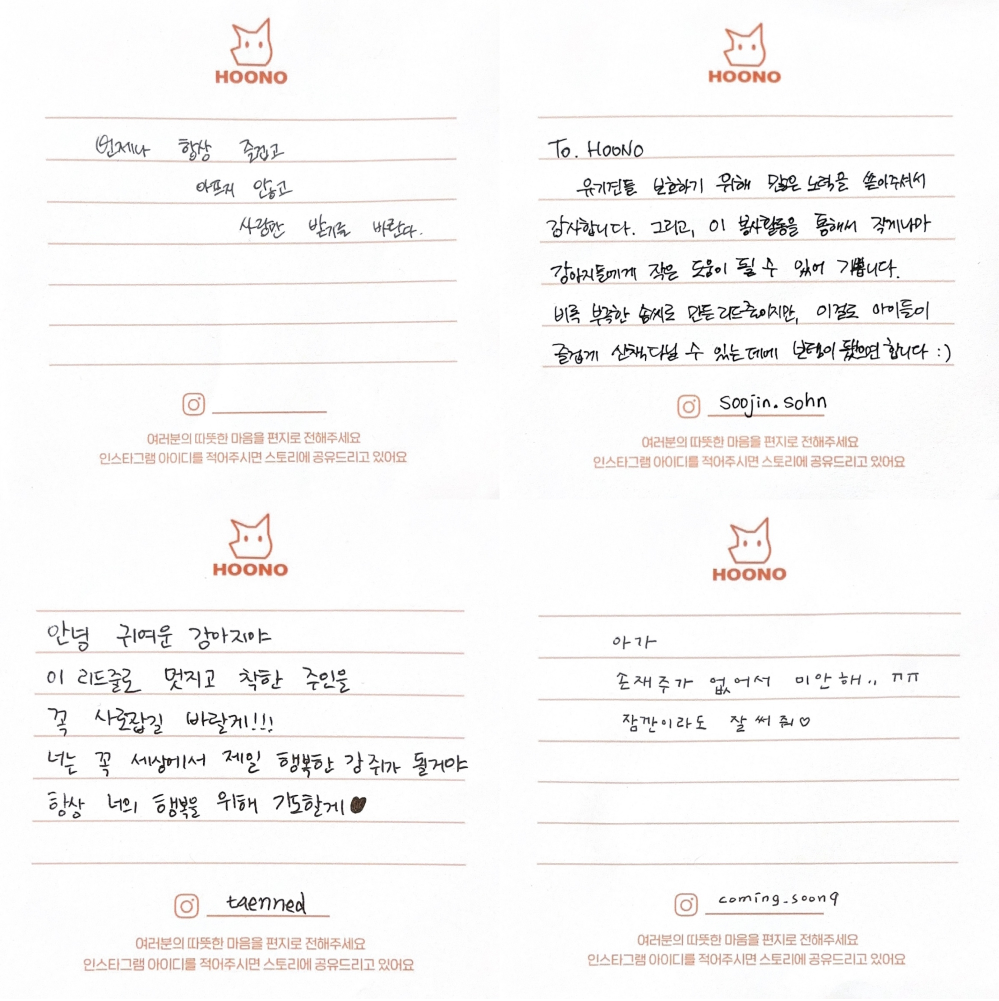 HOONO
언제나 항상 즐겁고
아프지 않고
사랑만 받기를 바란다.
여러분의 따뜻한 마음을 편지로 전해주세요
인스타그램 아이디를 적어주시면 스토리에 공유드리고 있어요
HOONO
To. HOONO
유기견들 보호하기 위해 많은 노력을 쏟아주셔서
감사합니다. 그리고, 이 봉사활동을 통해서 작게나마
강아지들에게 작은 도움이 될 수 있어 기쁩니다.
비록 부족한 솜씨로 만든 리드줄이지만, 이걸로 아이들이
즐겁게 산책다닐 수 있는데에 보탬이 됐으면 합니다 :)
soojin.sohn
여러분의 따뜻한 마음을 편지로 전해주세요
인스타그램 아이디를 적어주시면 스토리에 공유드리고 있어요
HOONO
안녕 귀여운 강아지야
이 리드줄로 멋지고 착한 주인을
꼭 사로잡길 바랄게!!!
너는 꼭 세상에서 제일 행복한 강쥐가 될거야
항상 너의 행복을 위해 기도할게♥
taenned
여러분의 따뜻한 마음을 편지로 전해주세요
인스타그램 아이디를 적어주시면 스토리에 공유드리고 있어요
HOONO
아가
손재주가 없어서 미안해.. ㅠㅠ
잠깐이라도 잘 써줘♡
coming_soon9
여러분의 따뜻한 마음을 편지로 전해주세요
인스타그램 아이디를 적어주시면 스토리에 공유드리고 있어요